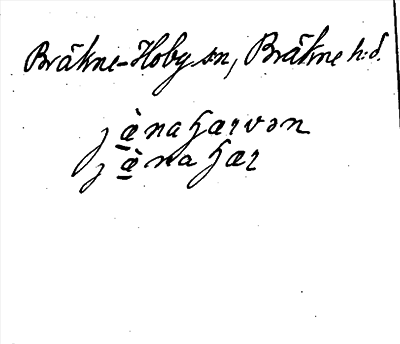 Bräkne-Hoby sn, Bräkne h:d.
jæ̀nahærvən
jæ̀nahær